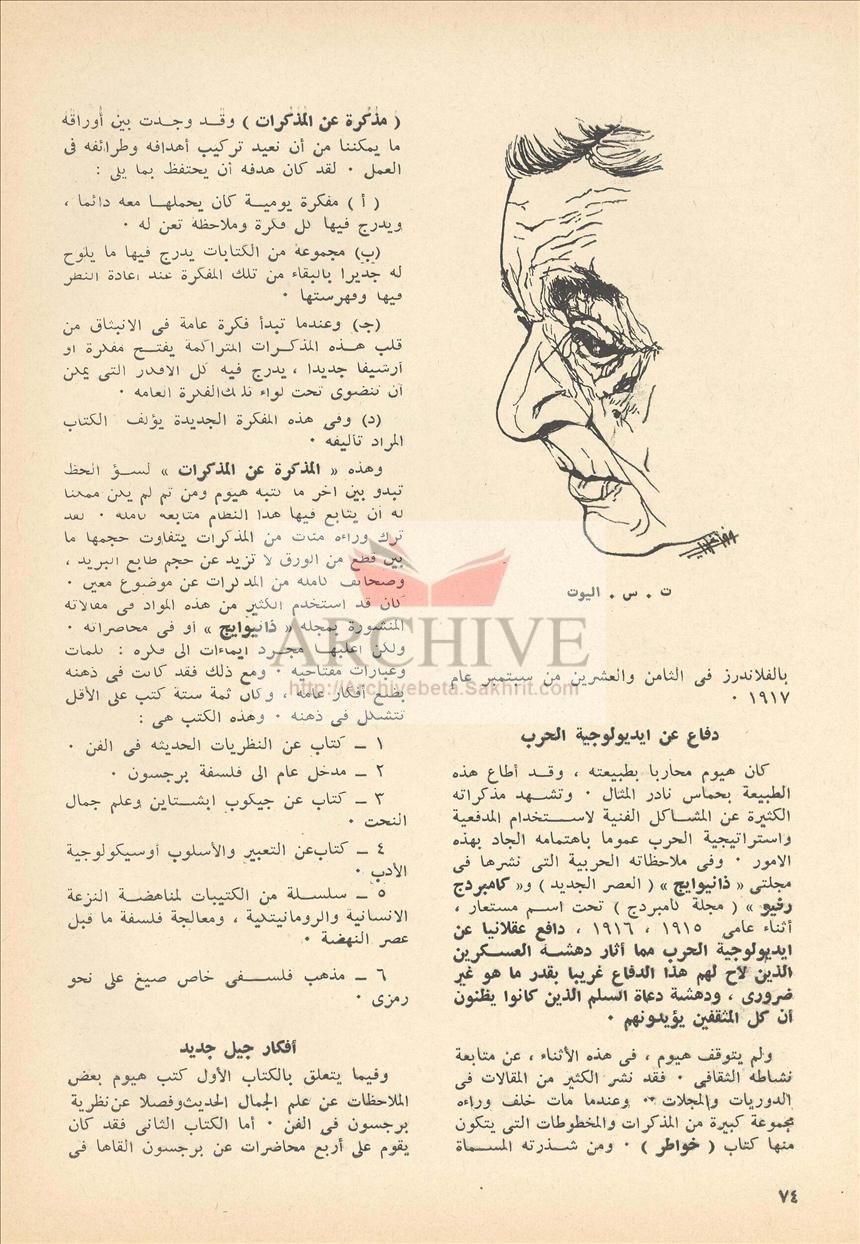 ت . س . اليوت
بالفلاندرز فى الثامن والعشرين من سبتمبر عام
١٩١٧ .
دفاع عن ايديولوجية الحرب
كان هيوم محاربا بطبيعته ، وقد أطاع هذه
الطبيعة بحماس نادر المثال . وتشهد مذكراته
الكثيرة عن المشاكل الفنية لاستخدام المدفعية
واستراتيجية الحرب عموما باهتمامه الجاد بهذه
الامور . وفى ملاحظاته الحربية التى نشرها فى
مجلتى « ذانيوايج » ( العصر الجديد ) و« كامبردج
رفيو » ( مجلة كامبردج ) تحت اسم مستعار ،
أثناء عامى ١٩١٥ ، ١٩١٦ ، دافع عقلانيا عن
ايديولوجية الحرب مما أثار دهشة العسكرين
الذين لاح لهم هذا الدفاع غريبا بقدر ما هو غير
ضرورى ، ودهشة دعاة السلم الذين كانوا يظنون
أن كل المثقفين يؤيدونهم .
ولم يتوقف هيوم ، فى هذه الأثناء ، عن متابعة
نشاطه الثقافى . فقد نشر الكثير من المقالات فى
الدوريات والمجلات .. وعندما مات خلف وراءه
مجموعة كبيرة من المذكرات والمخطوطات التى يتكون
منها كتاب ( خواطر ) . ومن شذرته المسماة
( مذكرة عن المذكرات ) وقد وجدت بين أوراقه
ما يمكننا من أن نعيد تركيب أهدافه وطرائفه فى
العمل . لقد كان هدفه أن يحتفظ بما يلى :
( أ ) مفكرة يومية كان يحملها معه دائما ،
ويدرج فيها كل فكرة وملاحظة تعن له .
(ب) مجموعة من الكتابات يدرج فيها ما يلوح
له جديرا بالبقاء من تلك المفكرة عند اعادة النظر
فيها وفهرستها .
(جـ) وعندما تبدأ فكرة عامة فى الانبثاق من
قلب هذه المذكرات المتراكمة يفتح مفكرة أو
أرشيفا جديدا ، يدرج فيه كل الأفكار التى يمكن
أن تنضوى تحت لواء تلك الفكرة العامة .
(د) وفى هذه المفكرة الجديدة يؤلف الكتاب
المراد تأليفه .
وهذه « المذكرة عن المذكرات » لسؤ الحظ
تبدو بين آخر ما كتبه هيوم ومن ثم لم يكن ممكنا
له أن يتابع فيها هذا النظام متابعة كاملة . لقد
ترك وراءه مئات من المذكرات يتفاوت حجمها ما
بين قطع من الورق لا تزيد عن حجم طابع البريد ،
وصحائف كاملة من المذكرات عن موضوع معين .
كان قد استخدم الكثير من هذه المواد فى مقالاته
المنشورة بمجلة « ذانيوايج » أو فى محاضراته .
ولكن أغلبها مجرد ايماءات الى فكرة : كلمات
وعبارات مفتاحية . ومع ذلك فقد كانت فى ذهنه
بضع أفكار عامة ، وكان ثمة ستة كتب على الأقل
تتشكل فى ذهنه . وهذه الكتب هى :
١ – كتاب عن النظريات الحديثة فى الفن .
٢ – مدخل عام الى فلسفة برجسون .
٣ – كتاب عن جيكوب ابشتاين وعلم جمال
النحت .
٤ – كتاب عن التعبير والأسلوب أوسيكولوجية
الأدب .
٥ – سلسلة من الكتيبات لمناهضة النزعة
الانسانية والرومانيتكية ، ومعالجة فلسفة ما قبل
عصر النهضة .
٦ – مذهب فلسفى خاص صيغ على نحو
رمزى .
أفكار جيل جديد
وفيما يتعلق بالكتاب الأول كتب هيوم بعض
الملاحظات عن علم الجمال الحديث وفصلا عن نظرية
برجسون فى الفن . أما الكتاب الثانى فقد كان
يقوم على أربع محاضرات عن برجسون القاها فى
٧٤
ARCHIVE
http://Archivebeta.Sakhrit.com